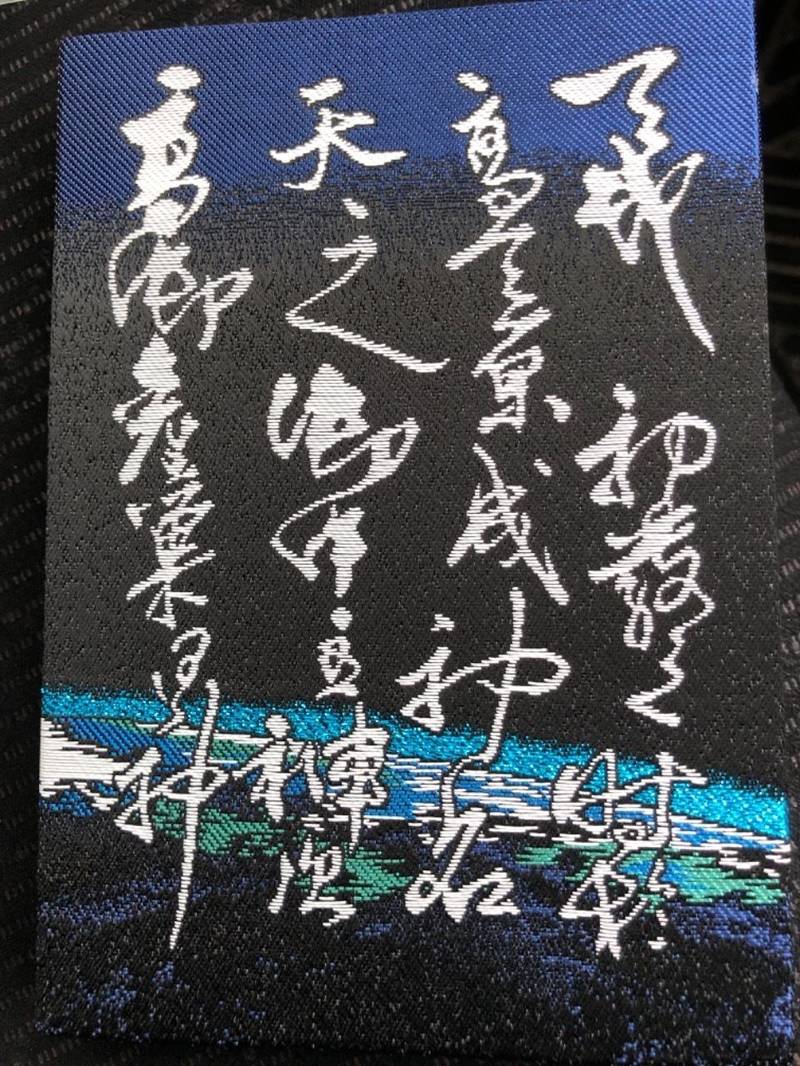 天地初發之時於
高天原成神名
天之御中主神次
高御產巢日神